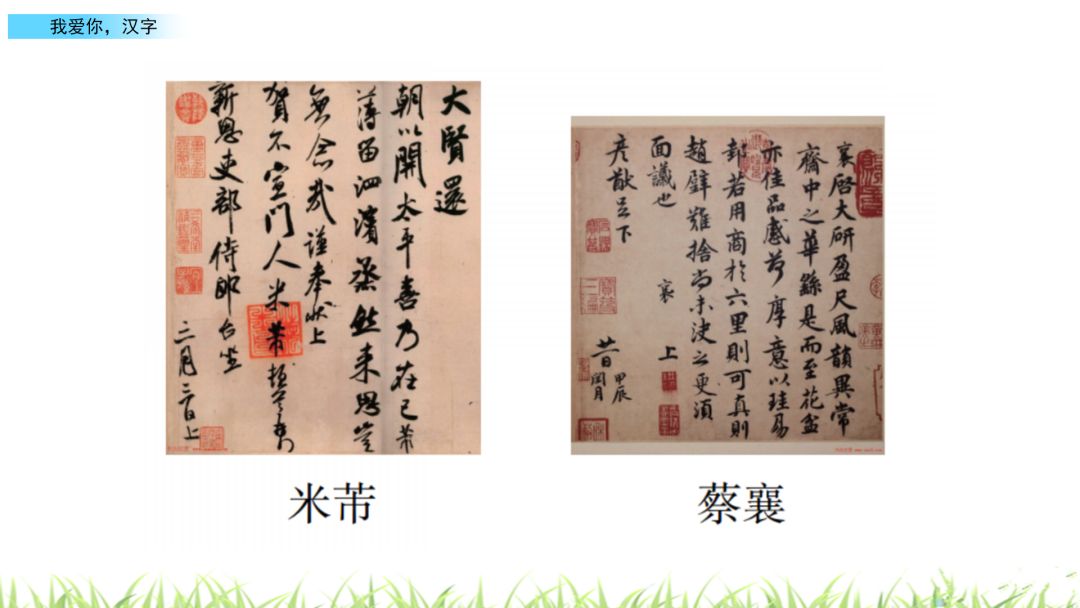 我爱你，汉字
大賢還
朝以開太平喜乃在己芾
薄留泗濱丞然来思豈
無念哉謹奉狀上
賀不宣門人米芾頓首再
新恩吏部侍郎台坐
二月二日上
襄啓大研盈尺風韻異常
齋中之華繇是而至花盆
亦佳品感荷厚意以珪易
邽若用商於六里則可真則
趙璧難捨尚未決之更須
面議也
襄 上
彦猷足下
甲辰
閏月
米芾
蔡襄